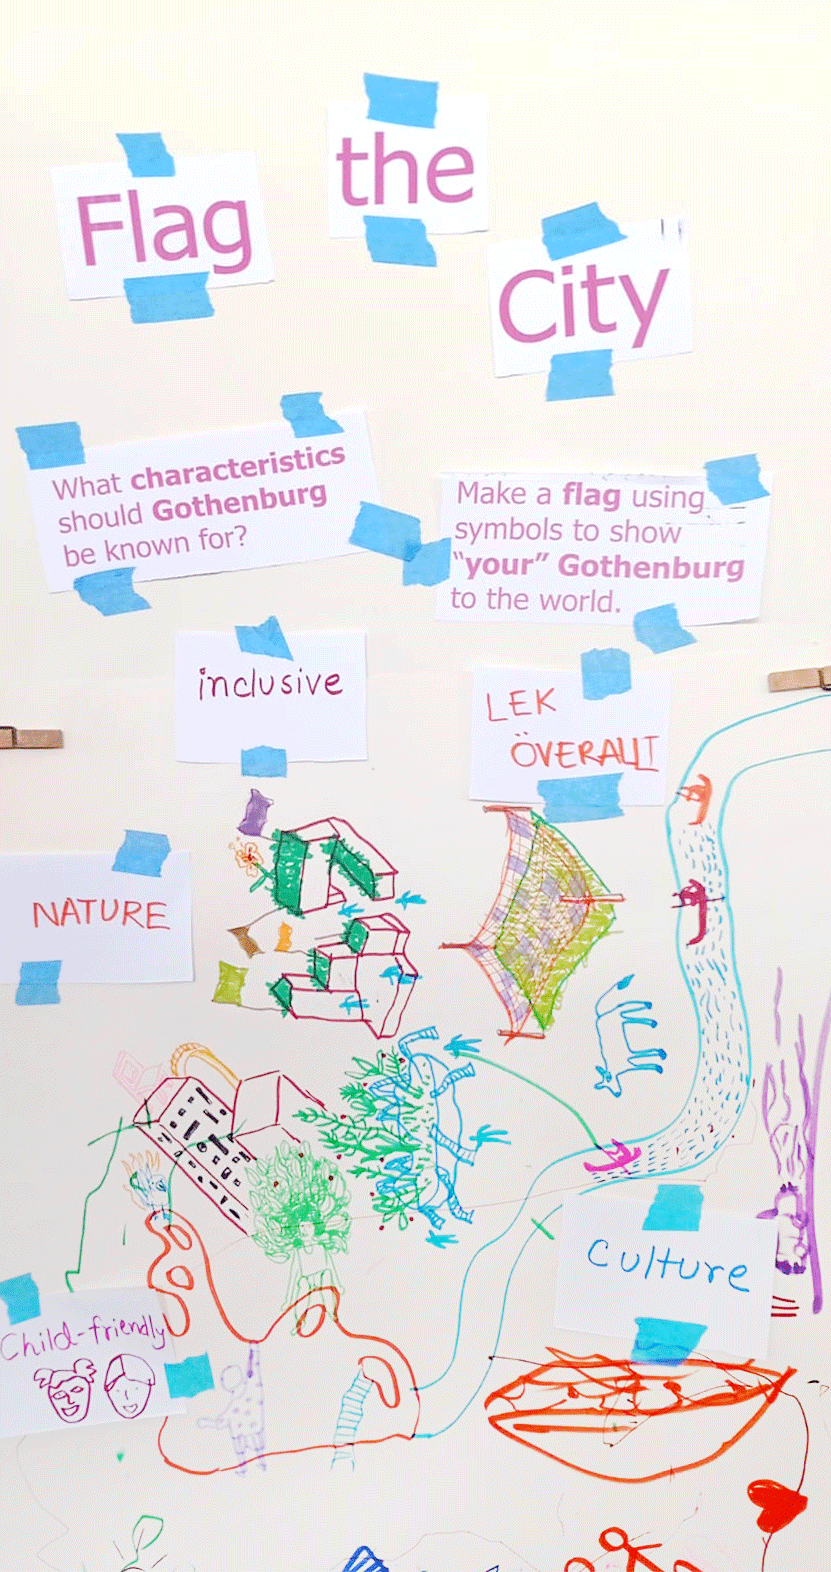 Flag
the
City
What characteristics
should Gothenburg
be known for?
Make a flag using
symbols to show
“your” Gothenburg
to the world.
inclusive
LEK
ÖVERALLT
NATURE
Culture
Child-friendly